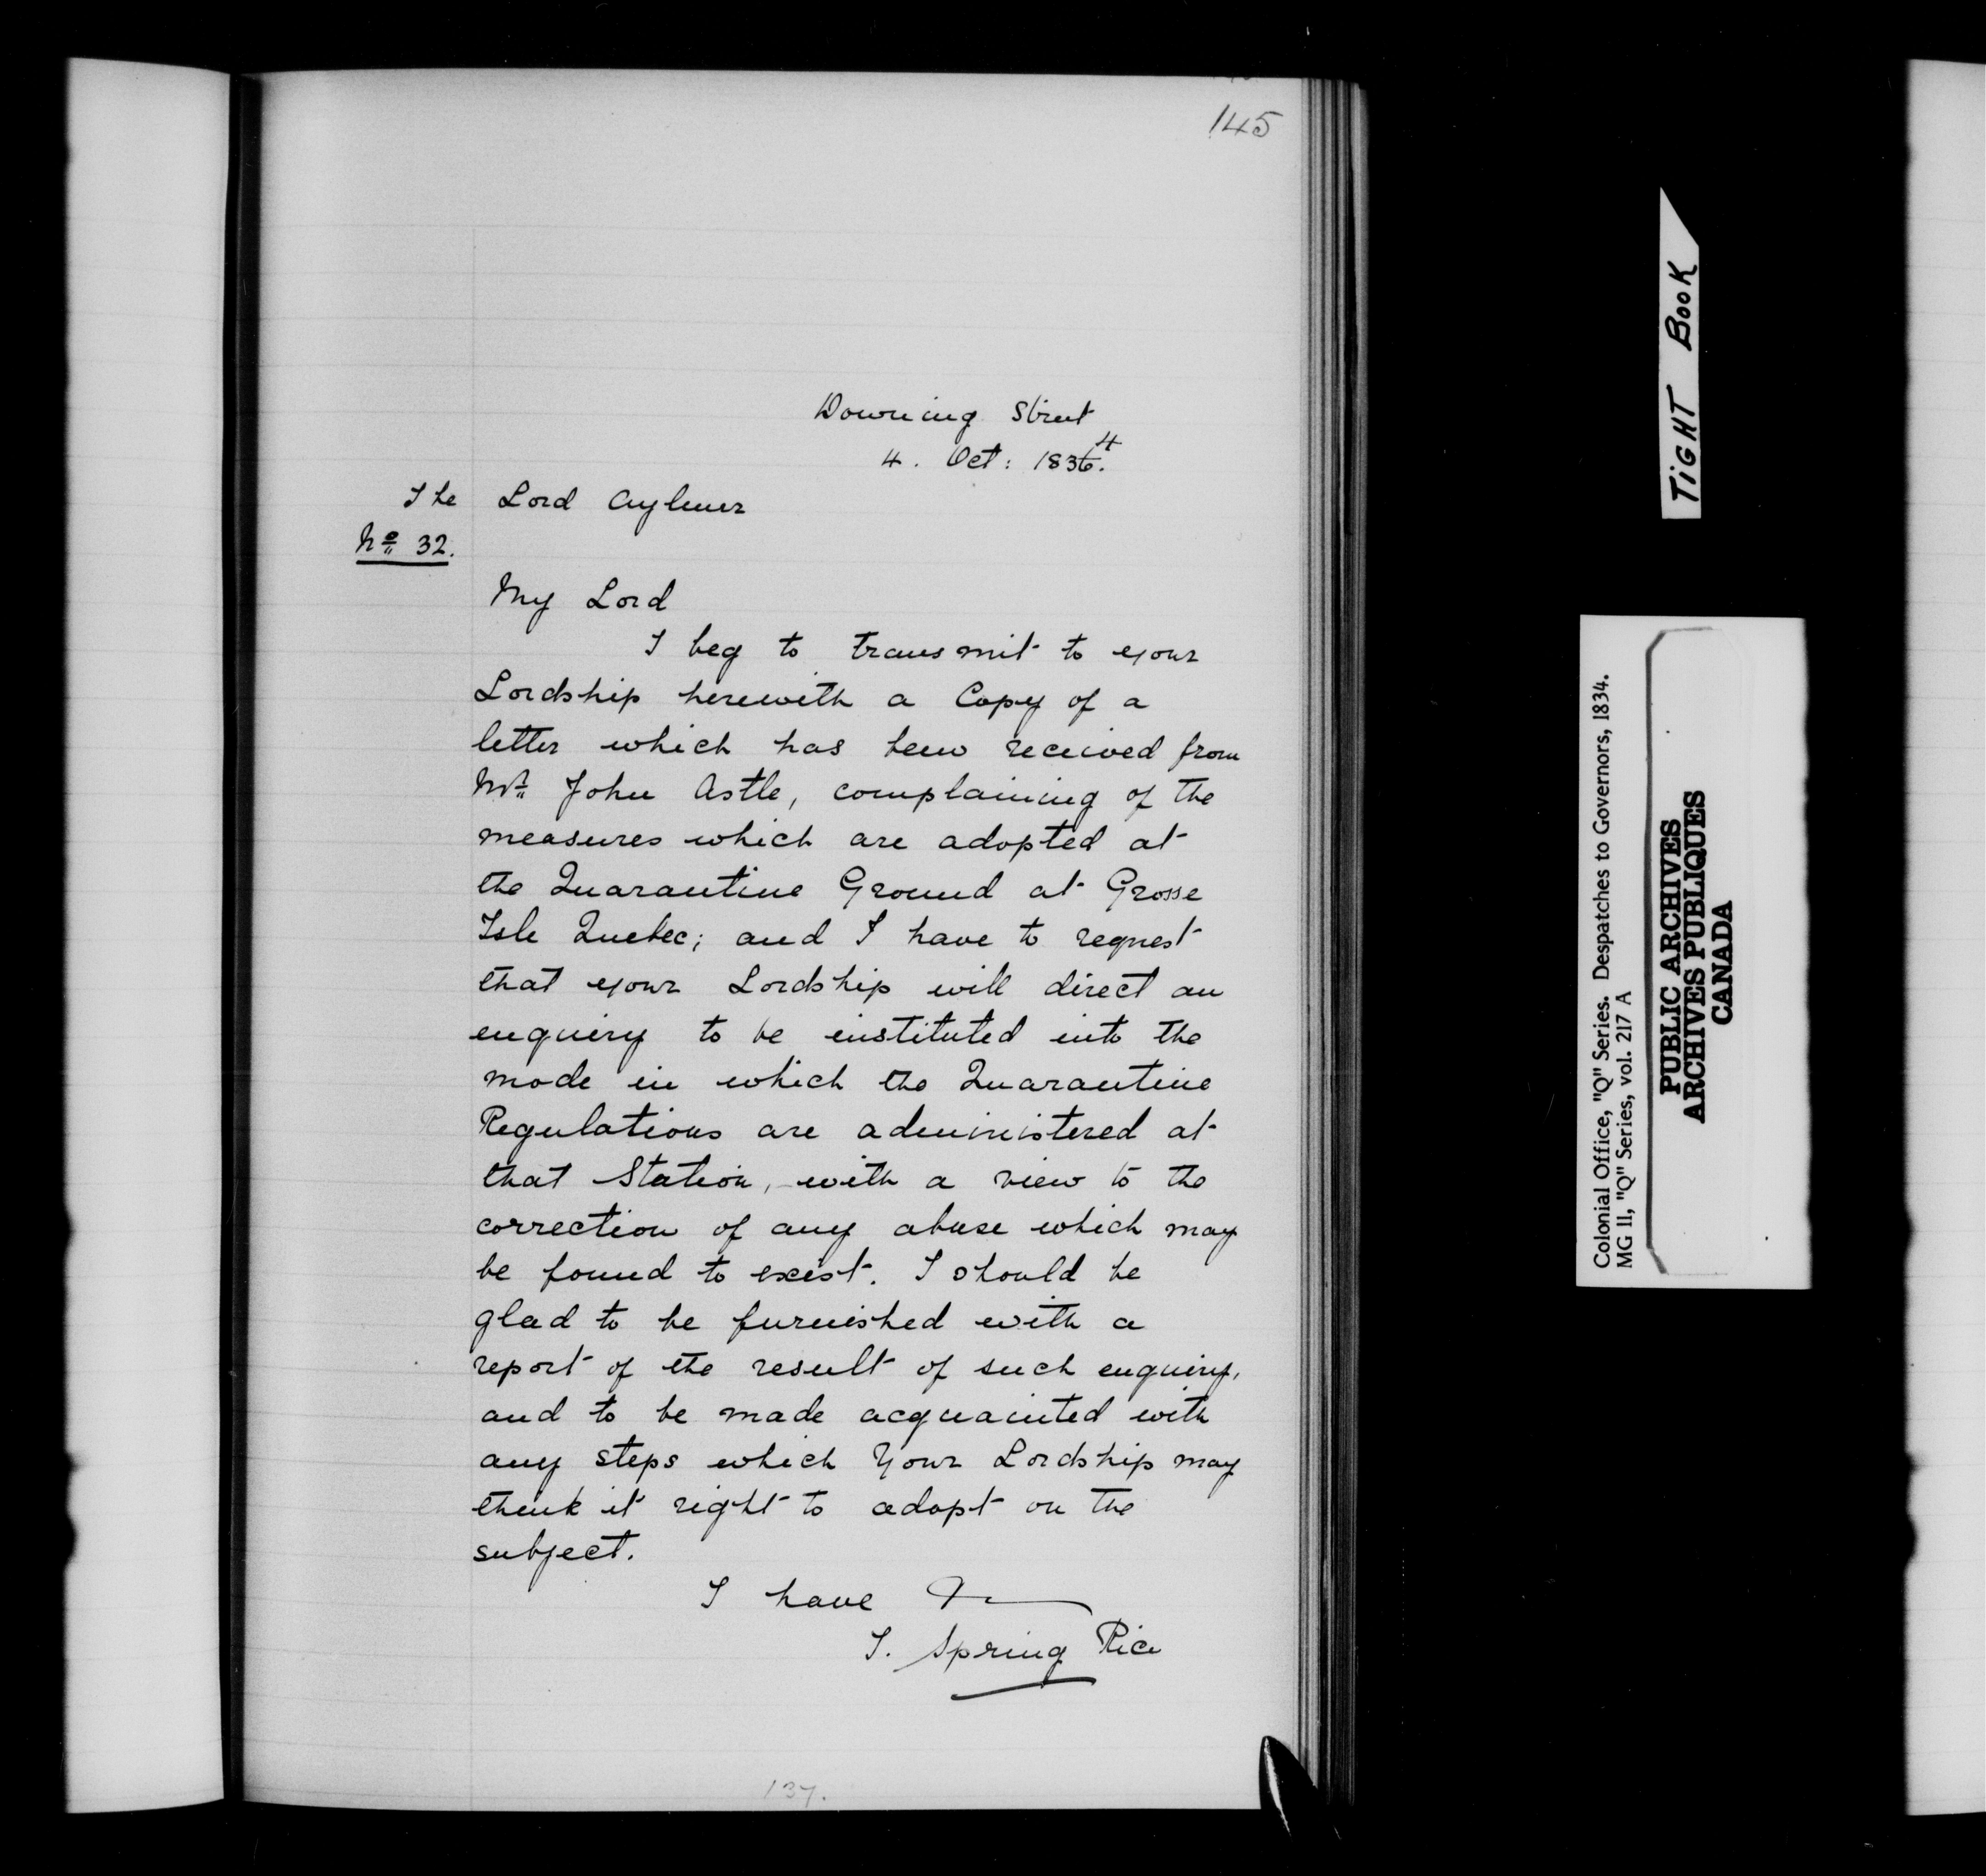 145
Downing Street
4. Oct: 1836. 4
The Lord Aylmer
No 32.
My Lord
I beg to transmit to your
Lordship herewith a Copy of a
letter which has been received from
Mr John Astle, complaining of the
measures which are adopted at
the Quarantine Ground at Grosse
Isle Quebec; and I have to request
that your Lordship will direct an
enquiry to be instituted into the
mode in which the Quarantine
Regulations are administered at
that Station, with a view to the
correction of any abuse which may
be found to exist. I should be
glad to be furnished with a
report of the result of such enquiry,
and to be made acquainted with
any steps which Your Lordship may
think it right to adopt on the
subject.
I have &c
T. Spring Rice
137.
TIGHT BOOK
Colonial Office, "Q" Series. Despatches to Governors, 1834.
MG 11, "Q" Series, vol. 217 A
PUBLIC ARCHIVES
ARCHIVES PUBLIQUES
CANADA